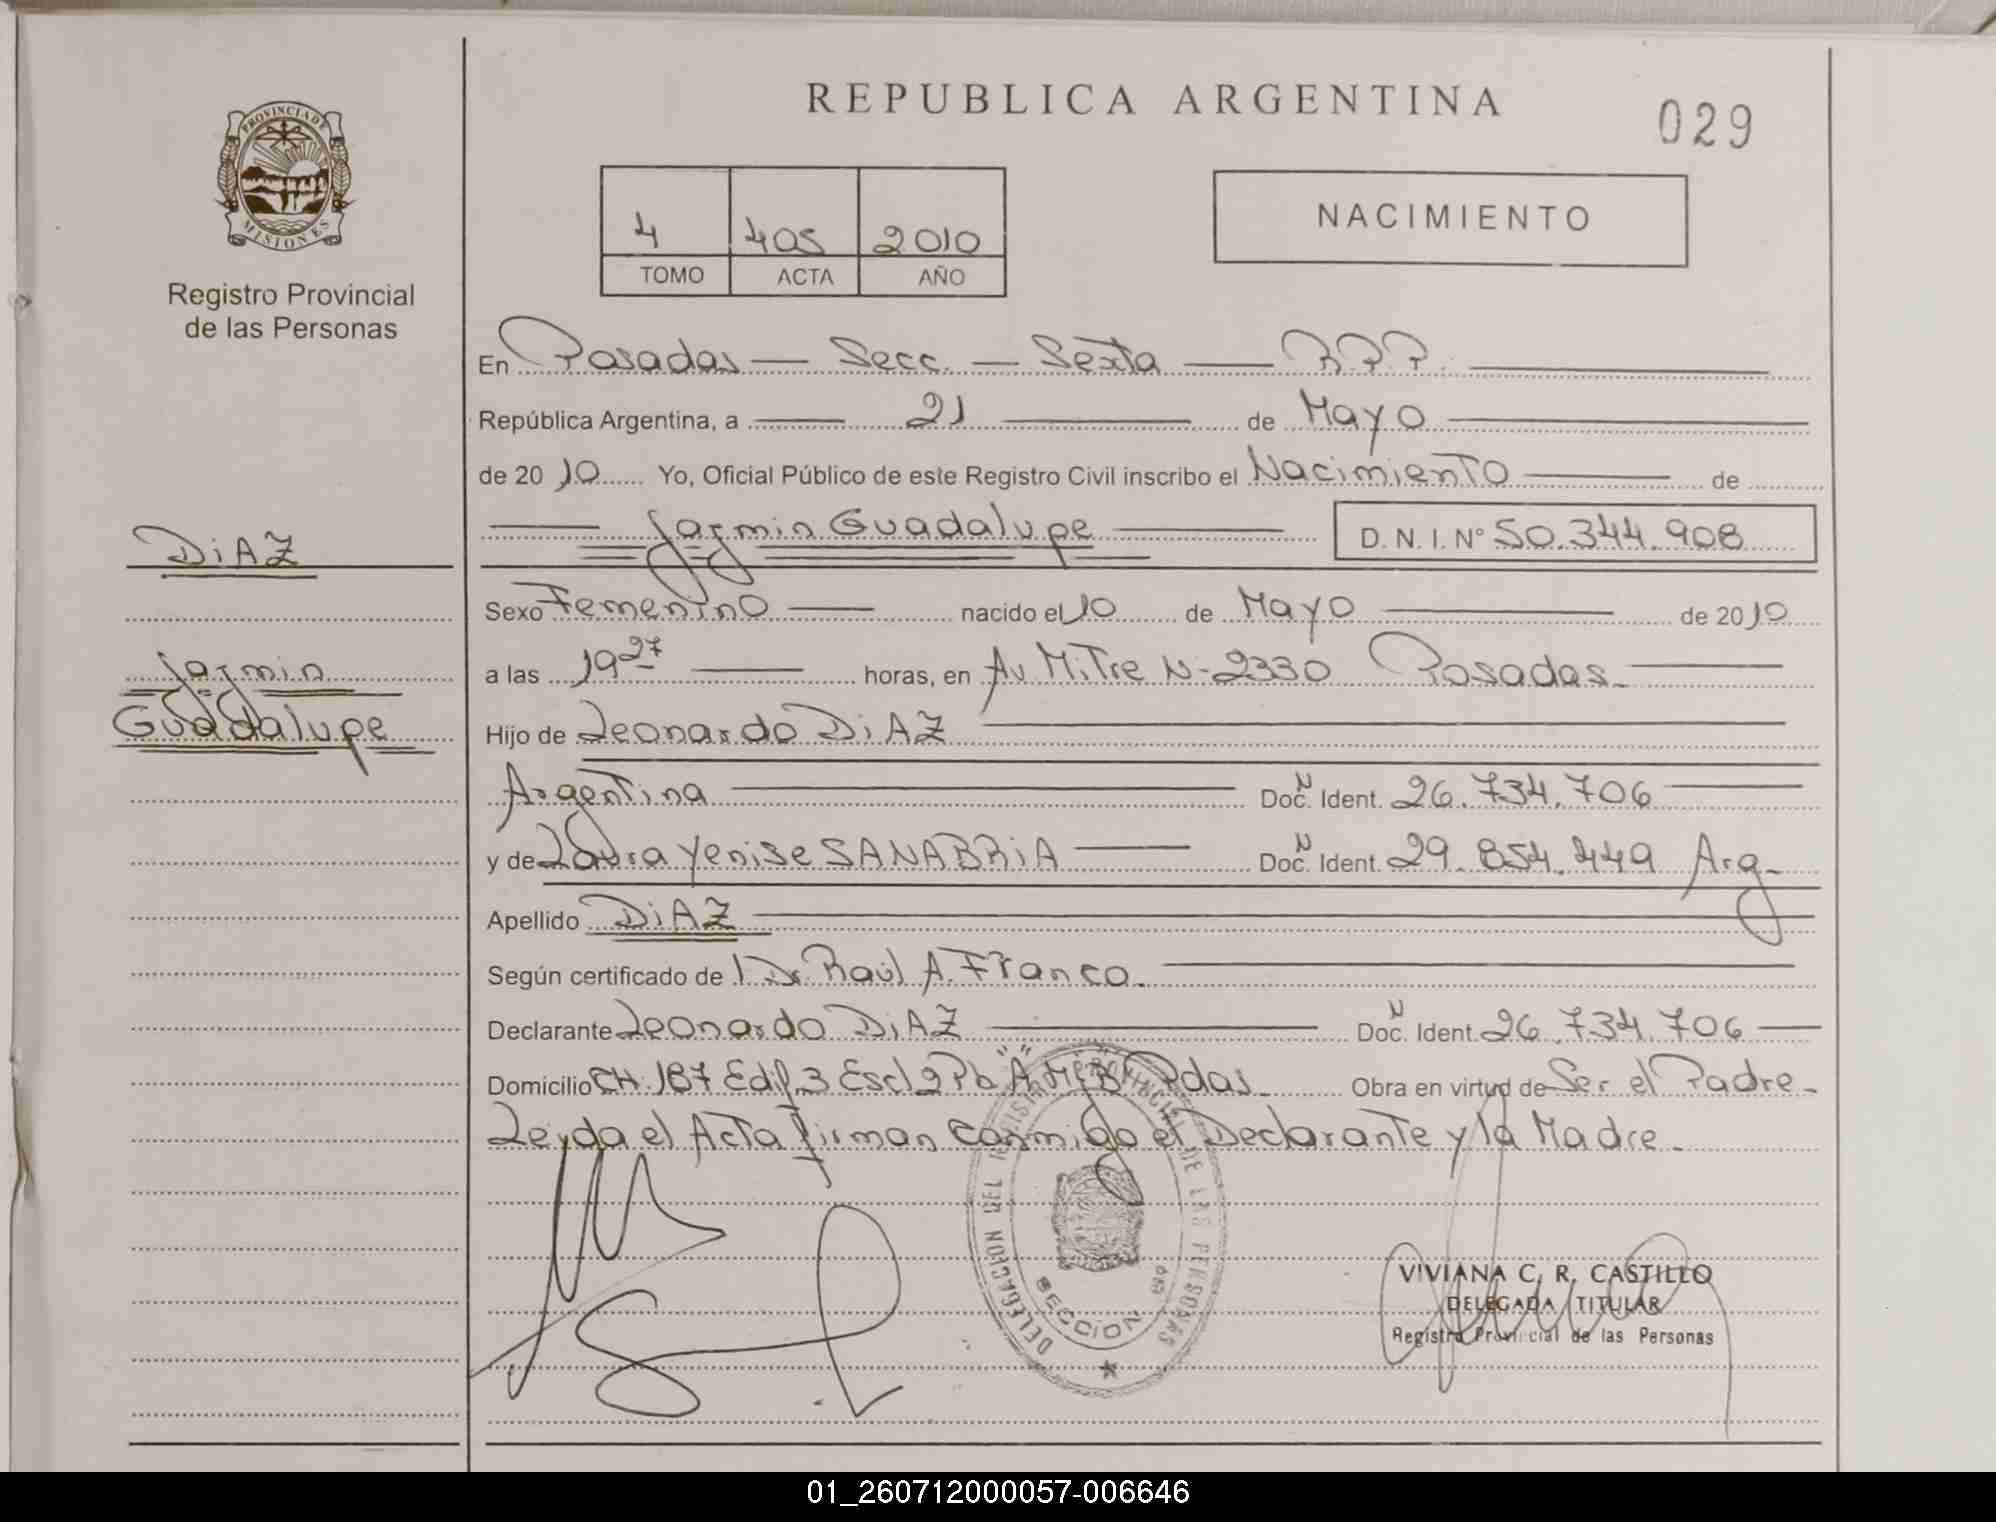 PROVINCIA DE
MISIONES
Registro Provincial
de las Personas
DiAZ
Jazmin
Guadalupe
REPUBLICA ARGENTINA
029
4 405 2010
TOMO ACTA AÑO
NACIMIENTO
En Posadas — Secc. — Sexta — R.P.P.
República Argentina, a 21 de Mayo
de 2010 Yo, Oficial Público de este Registro Civil inscribo el Nacimiento de
Jazmin Guadalupe D. N. I. Nº 50.344.908
Sexo Femenino nacido el 10 de Mayo de 2010
a las 19 27 horas, en Av Mitre N- 2330 Posadas.
Hijo de Leonardo DiAZ
Argentina Doc. N Ident. 26.734.706
y de Laura Yenise SANABRiA Doc. N Ident. 29.854.449 Arg.
Apellido DiAZ
Según certificado de Dr. Raúl A. Franco.
Declarante Leonardo DiAZ Doc. N Ident. 26.734.706
Domicilio CH. 187 Edif. 3 Escl 2 Pb "A" Pdas. Obra en virtud de Ser el Padre.
Leyda el Acta firman conmigo el Declarante y la Madre.
DELEGACION DEL REGISTRO PROVINCIAL DE LAS PERSONAS
SECCION 6ta
VIVIANA C. R. CASTILLO
DELEGADA TITULAR
Registro Provincial de las Personas
01_260712000057-006646